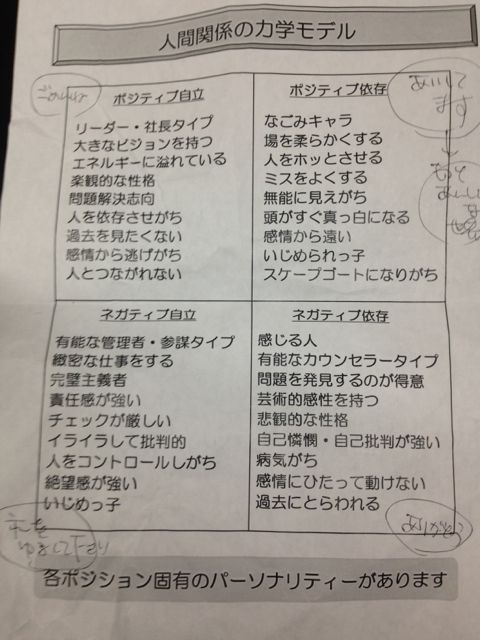 人間関係の力学モデル
ごめんね
ポジティブ自立
リーダー・社長タイプ
大きなビジョンを持つ
エネルギーに溢れている
楽観的な性格
問題解決志向
人を依存させがち
過去を見たくない
感情から逃げがち
人とつながれない
ポジティブ依存
なごみキャラ
場を柔らかくする
人をホッとさせる
ミスをよくする
無能に見えがち
頭がすぐ真っ白になる
感情から遠い
いじめられっ子
スケープゴートになりがち
あいして
ます
ネガティブ自立
有能な管理者・参謀タイプ
緻密な仕事をする
完璧主義者
責任感が強い
チェックが厳しい
イライラして批判的
人をコントロールしがち
絶望感が強い
いじめっ子
ネガティブ依存
感じる人
有能なカウンセラータイプ
問題を発見するのが得意
芸術的感性を持つ
悲観的な性格
自己憐憫・自己批判が強い
病気がち
感情にひたって動けない
過去にとらわれる
ありがとう
各ポジション固有のパーソナリティーがあります